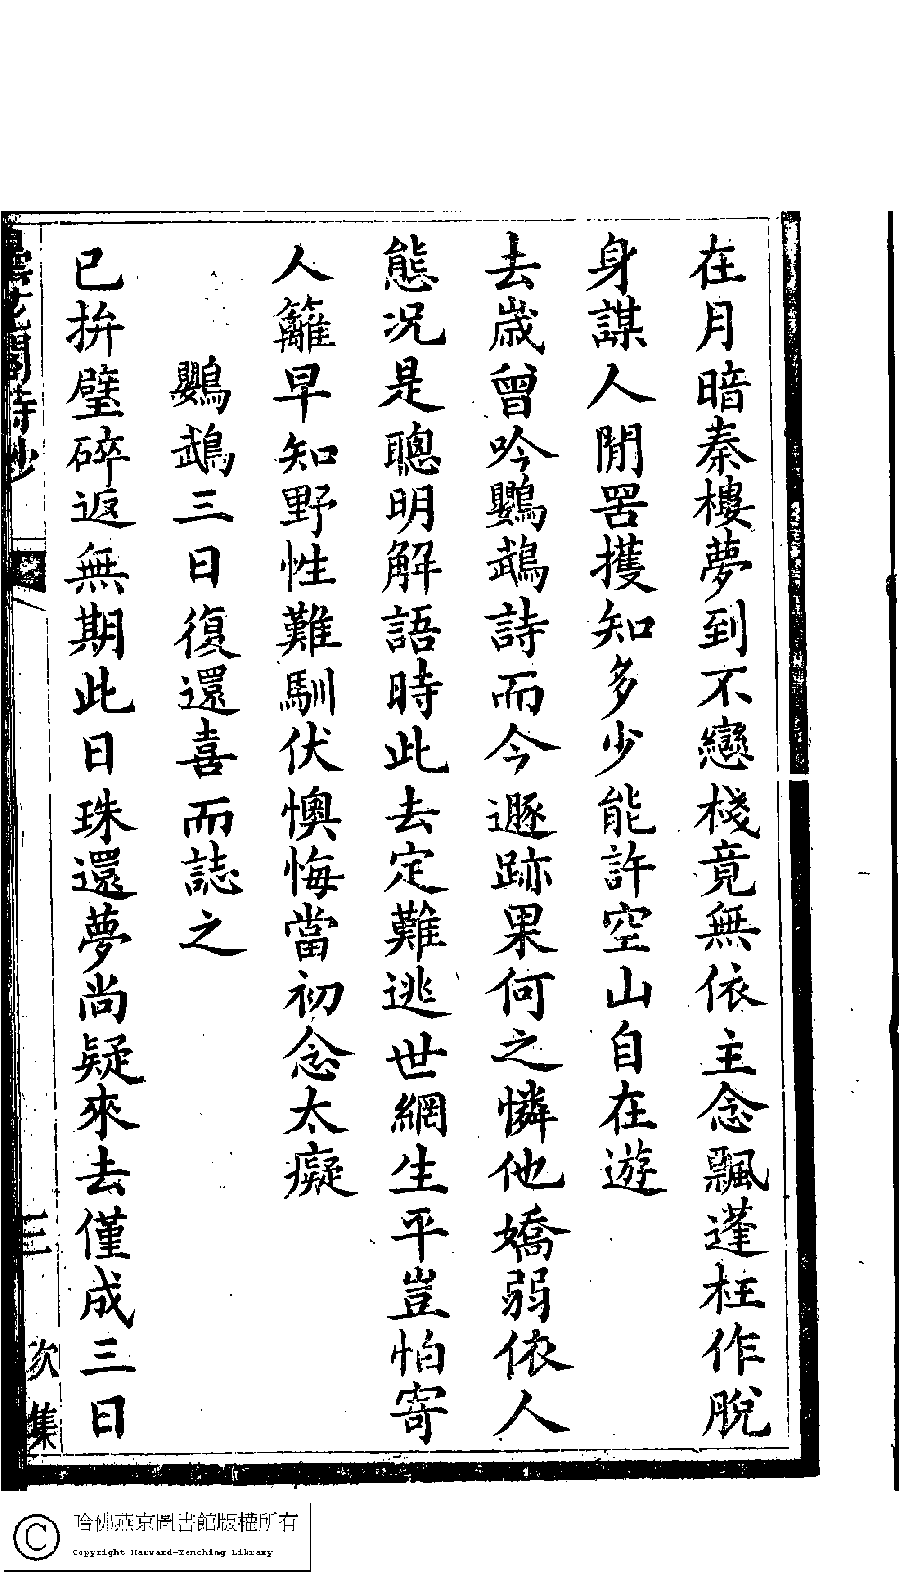 在月暗秦樓夢到不戀棧竟無依主念飄蓬枉作脫
身謀人閒罟擭知多少能許空山自在遊
去歲曾吟鸚鵡詩而今遯跡果何之憐他嬌弱依人
態况是聰明解語時此去定難逃世網生平豈怕寄
人籬早知野性難馴伏懊悔當初念太癡
鸚鵡三日復還喜而誌之
已拚璧碎返無期此日珠還夢尚疑來去僅成三日
曇花閣詩鈔
三
次集
哈佛燕京圖書館版權所有
Copyright Harvard-Yenching Library